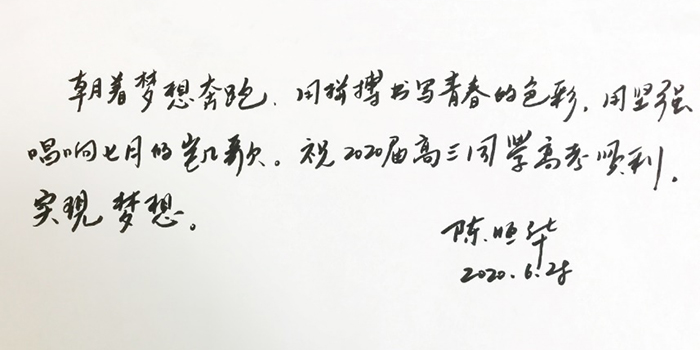 朝着梦想奔跑,用拼搏书写青春的色彩,用坚强
唱响七月的凯歌。祝2020届高三同学高考顺利,
实现梦想。
陈恒华
2020.6.28